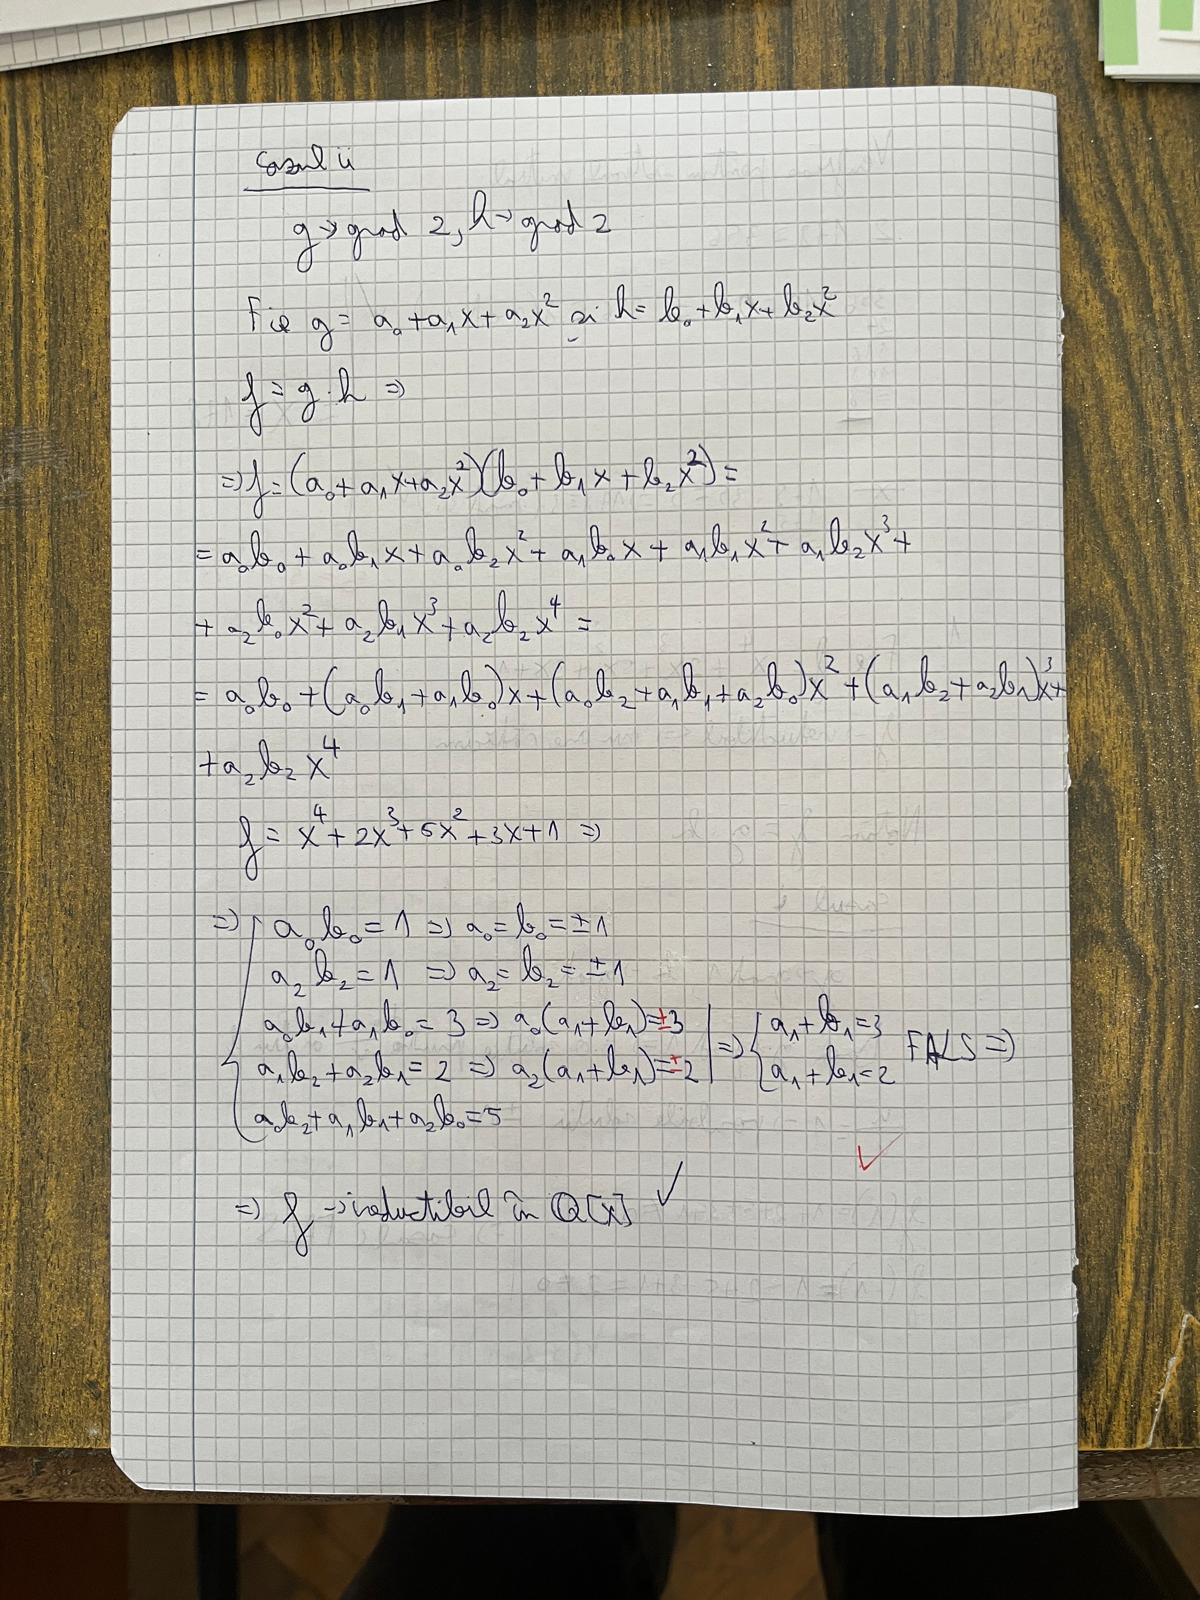 Cazul ii
g → grad 2, h → grad 2
Fie g = a₀ + a₁x + a₂x² și h = b₀ + b₁x + b₂x²
f = g · h ⇒
⇒ f = (a₀ + a₁x + a₂x²)(b₀ + b₁x + b₂x²) =
= a₀b₀ + a₀b₁x + a₀b₂x² + a₁b₀x + a₁b₁x² + a₁b₂x³ +
+ a₂b₀x² + a₂b₁x³ + a₂b₂x⁴ =
= a₀b₀ + (a₀b₁ + a₁b₀)x + (a₀b₂ + a₁b₁ + a₂b₀)x² + (a₁b₂ + a₂b₁)x³ +
+ a₂b₂x⁴
f = x⁴ + 2x³ + 5x² + 3x + 1 ⇒
⇒ { a₀b₀ = 1 ⇒ a₀ = b₀ = ±1
a₂b₂ = 1 ⇒ a₂ = b₂ = ±1
a₀b₁ + a₁b₀ = 3 ⇒ a₀(a₁ + b₁) = ±3 | ⇒ { a₁ + b₁ = 3 FALS ⇒
a₁b₂ + a₂b₁ = 2 ⇒ a₂(a₁ + b₁) = ±2 | a₁ + b₁ = 2
a₀b₂ + a₁b₁ + a₂b₀ = 5
✓
⇒ f → ireductibil în Q[X] ✓